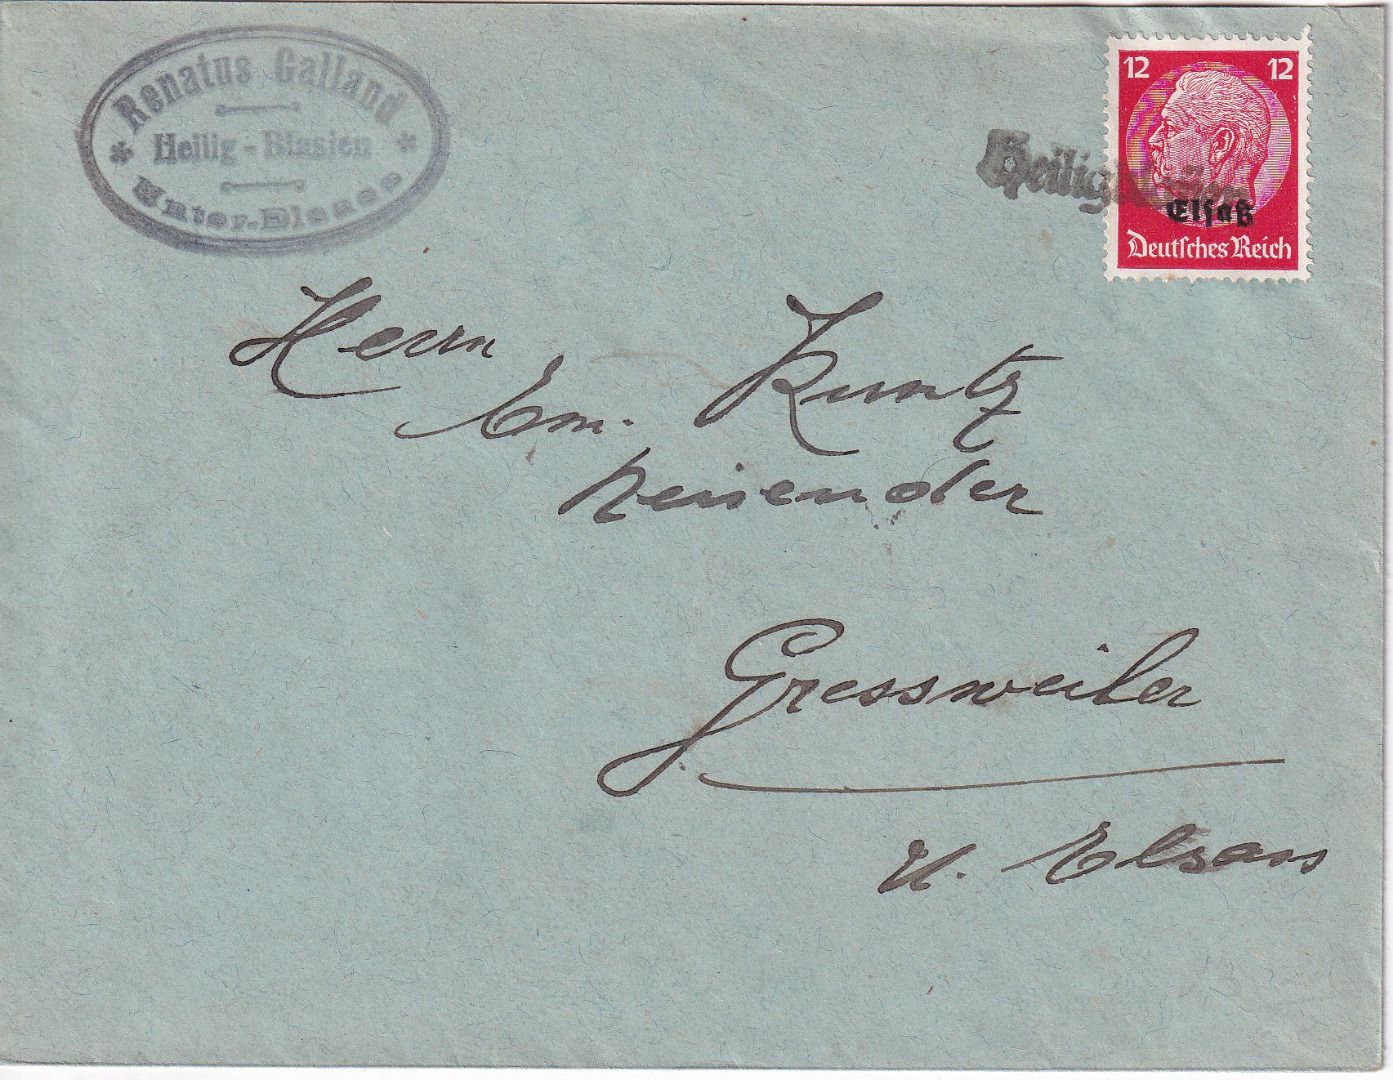 Renatus Galland
Heilig-Blasien
Unter-Elsass
12 12
Elsaß
Deutsches Reich
Herrn
Em. Kuntz
Reisender
Gressweiler
U. Elsass